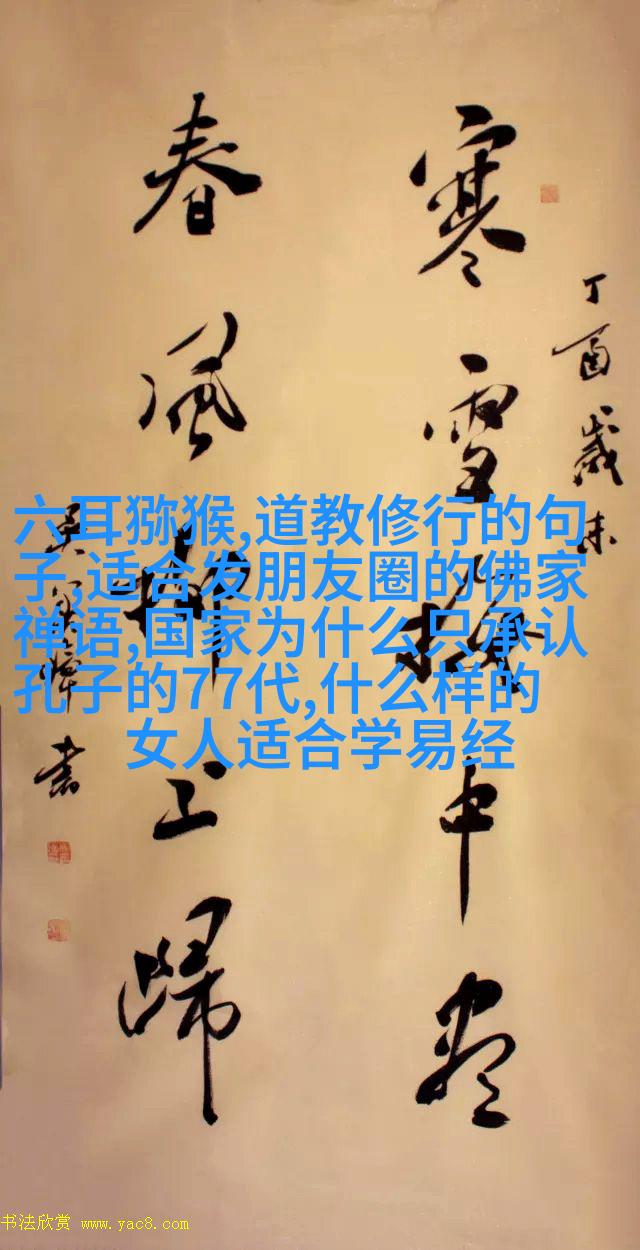 寒雪梅中尽
春风柳上归
丁酉岁末
吴
书
六耳猕猴,道教修行的句
子,适合发朋友圈的佛家
禅语,国家为什么只承认
孔子的77代,什么样的
女人适合学易经
书法欣赏 www.yac8.com